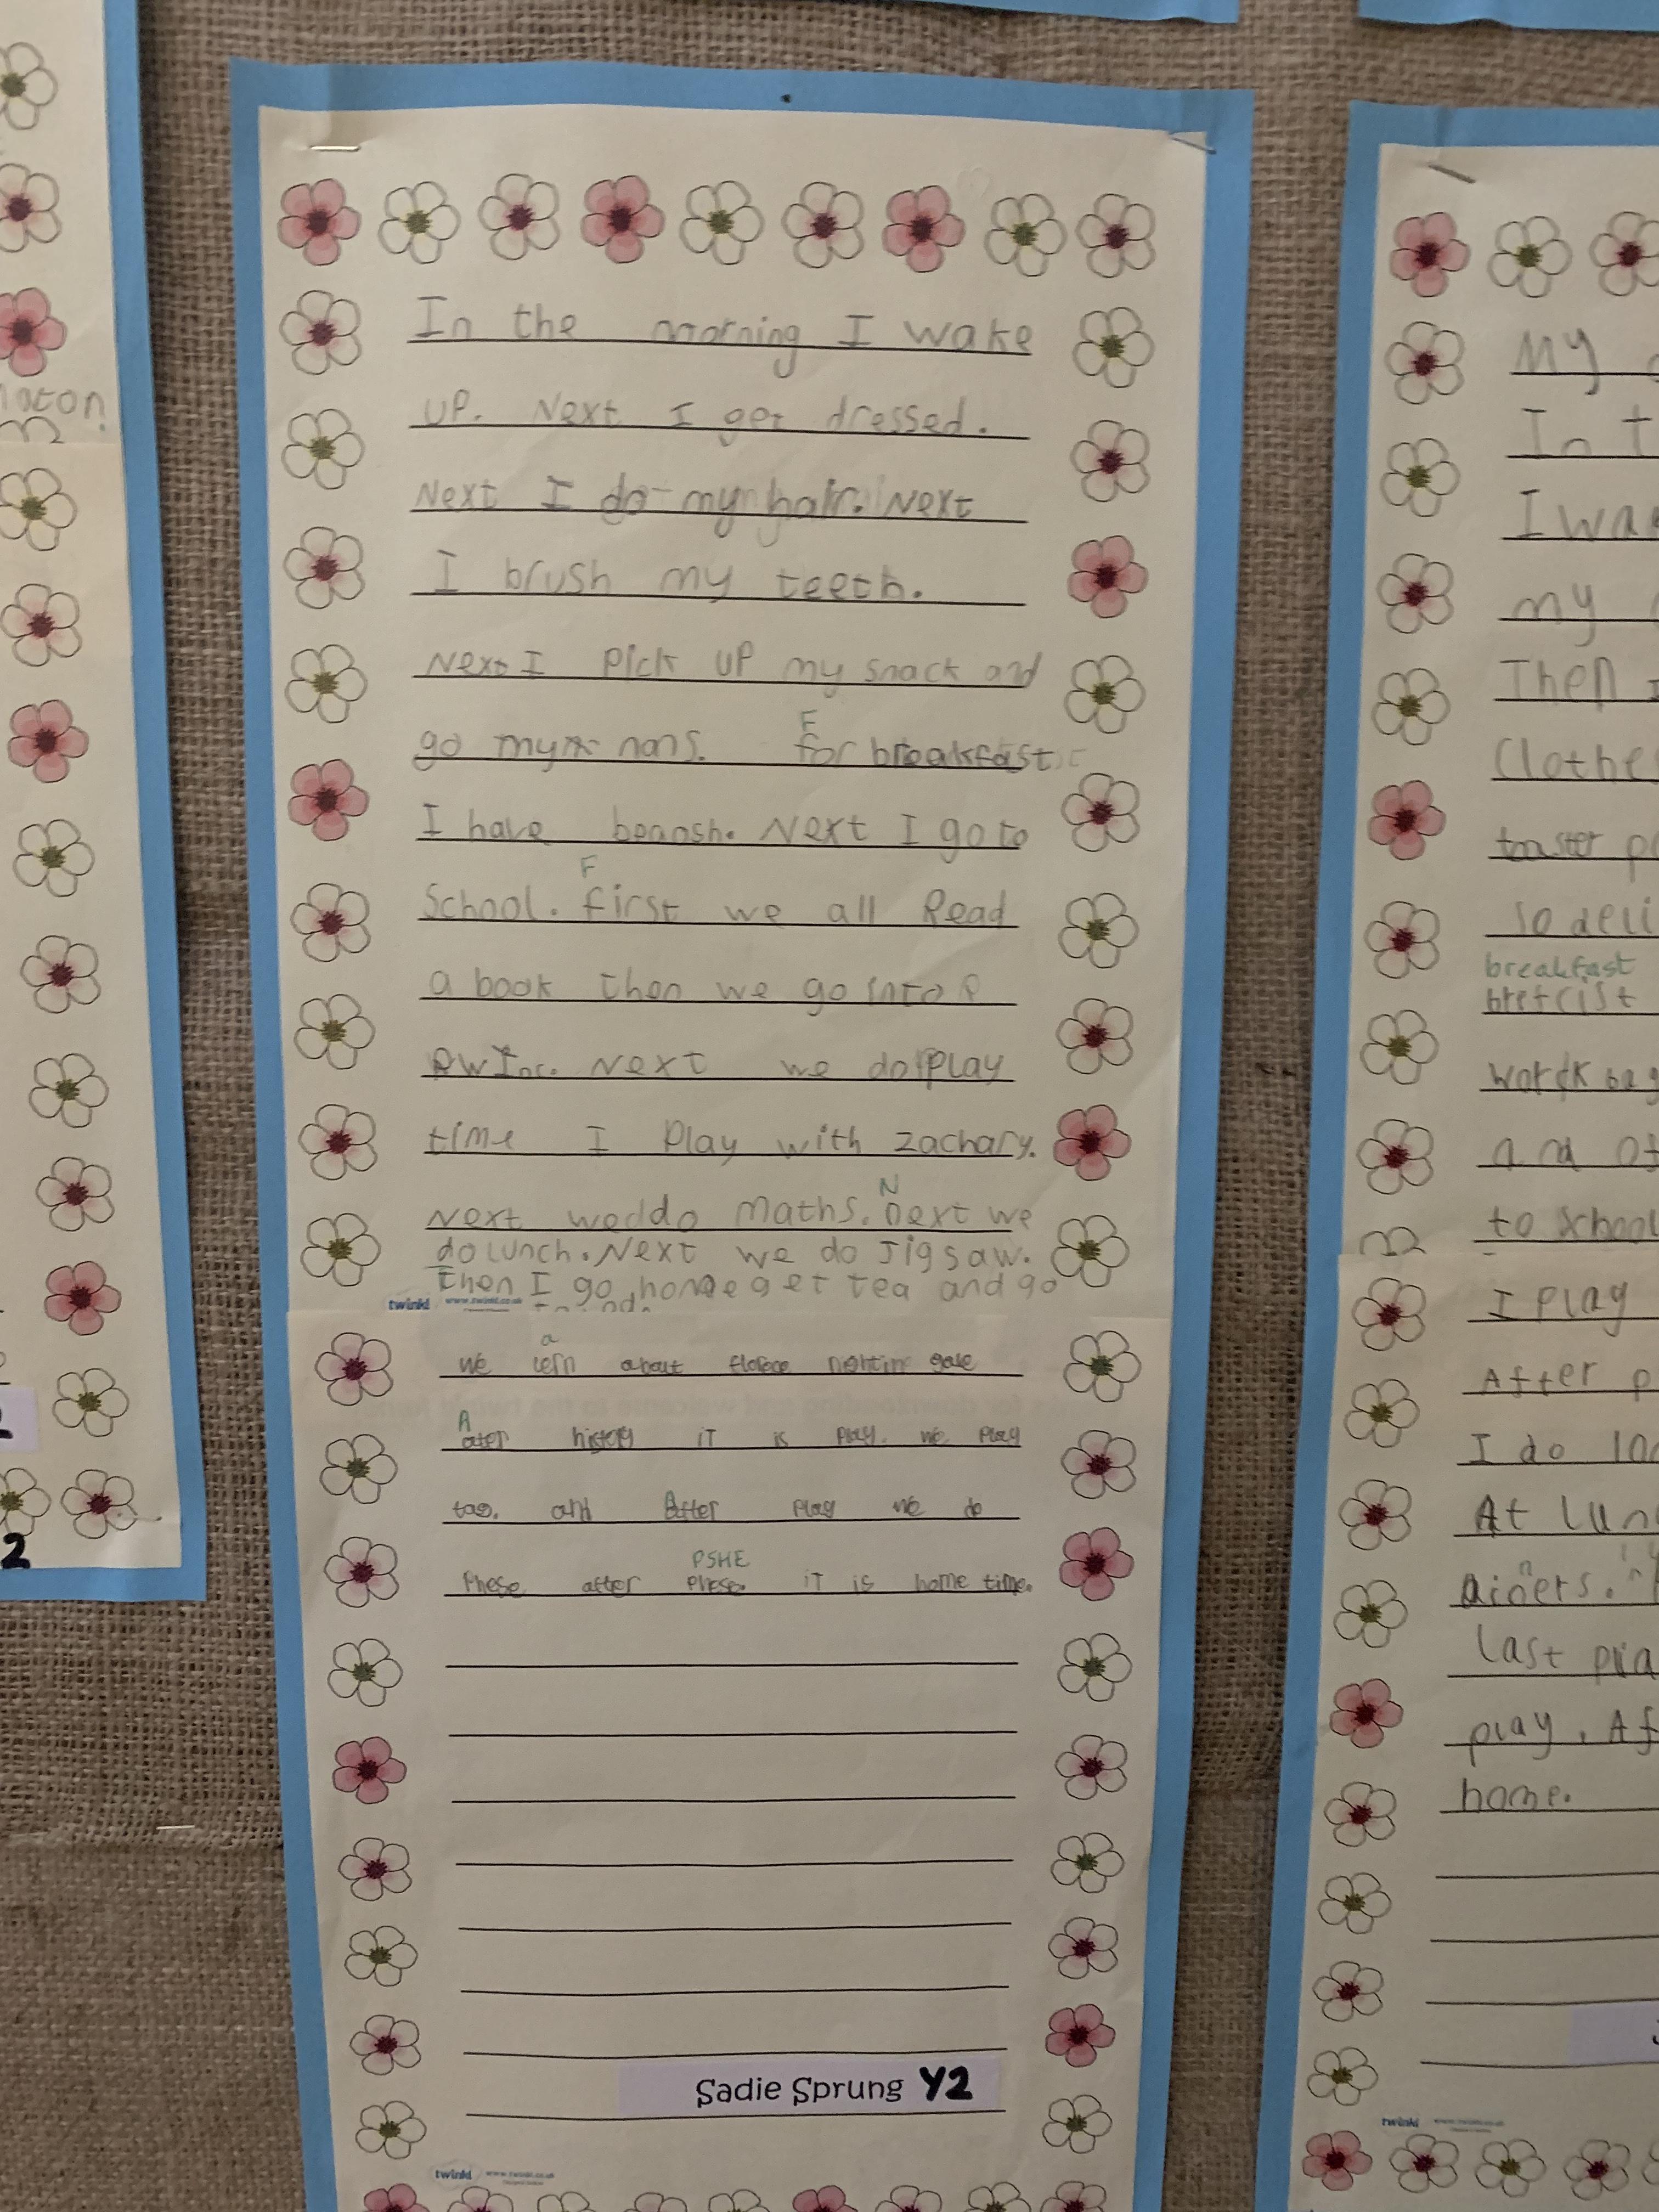 In the morning I wake
up. Next I get dressed.
Next I do my hair. Next
I brush my teeth.
Next I Pick UP my snack and
go my nans. for breakfast.
F
I have
Next I go to
F
School. first we all Read
a book then we go into
RWInc. Next we do play
time I Play with zachary.
N
Next we do maths. next we
do Lunch. Next we do Jigsaw.
then I go home get tea and go
twinkl www.twinkl.co.uk
a
we lern about
A
ater history iT is play. we play
tag. and After play we do
PSHE
Phese after phese. iT is home time.
Sadie Sprung Y2
twinkl www.twinkl.co.uk
My
I wa
my
Then
Clothe
toaster
so deli
breakfast
to School
I play
After p
I do
At Lun
last
play. Af
home.
twinkl
2